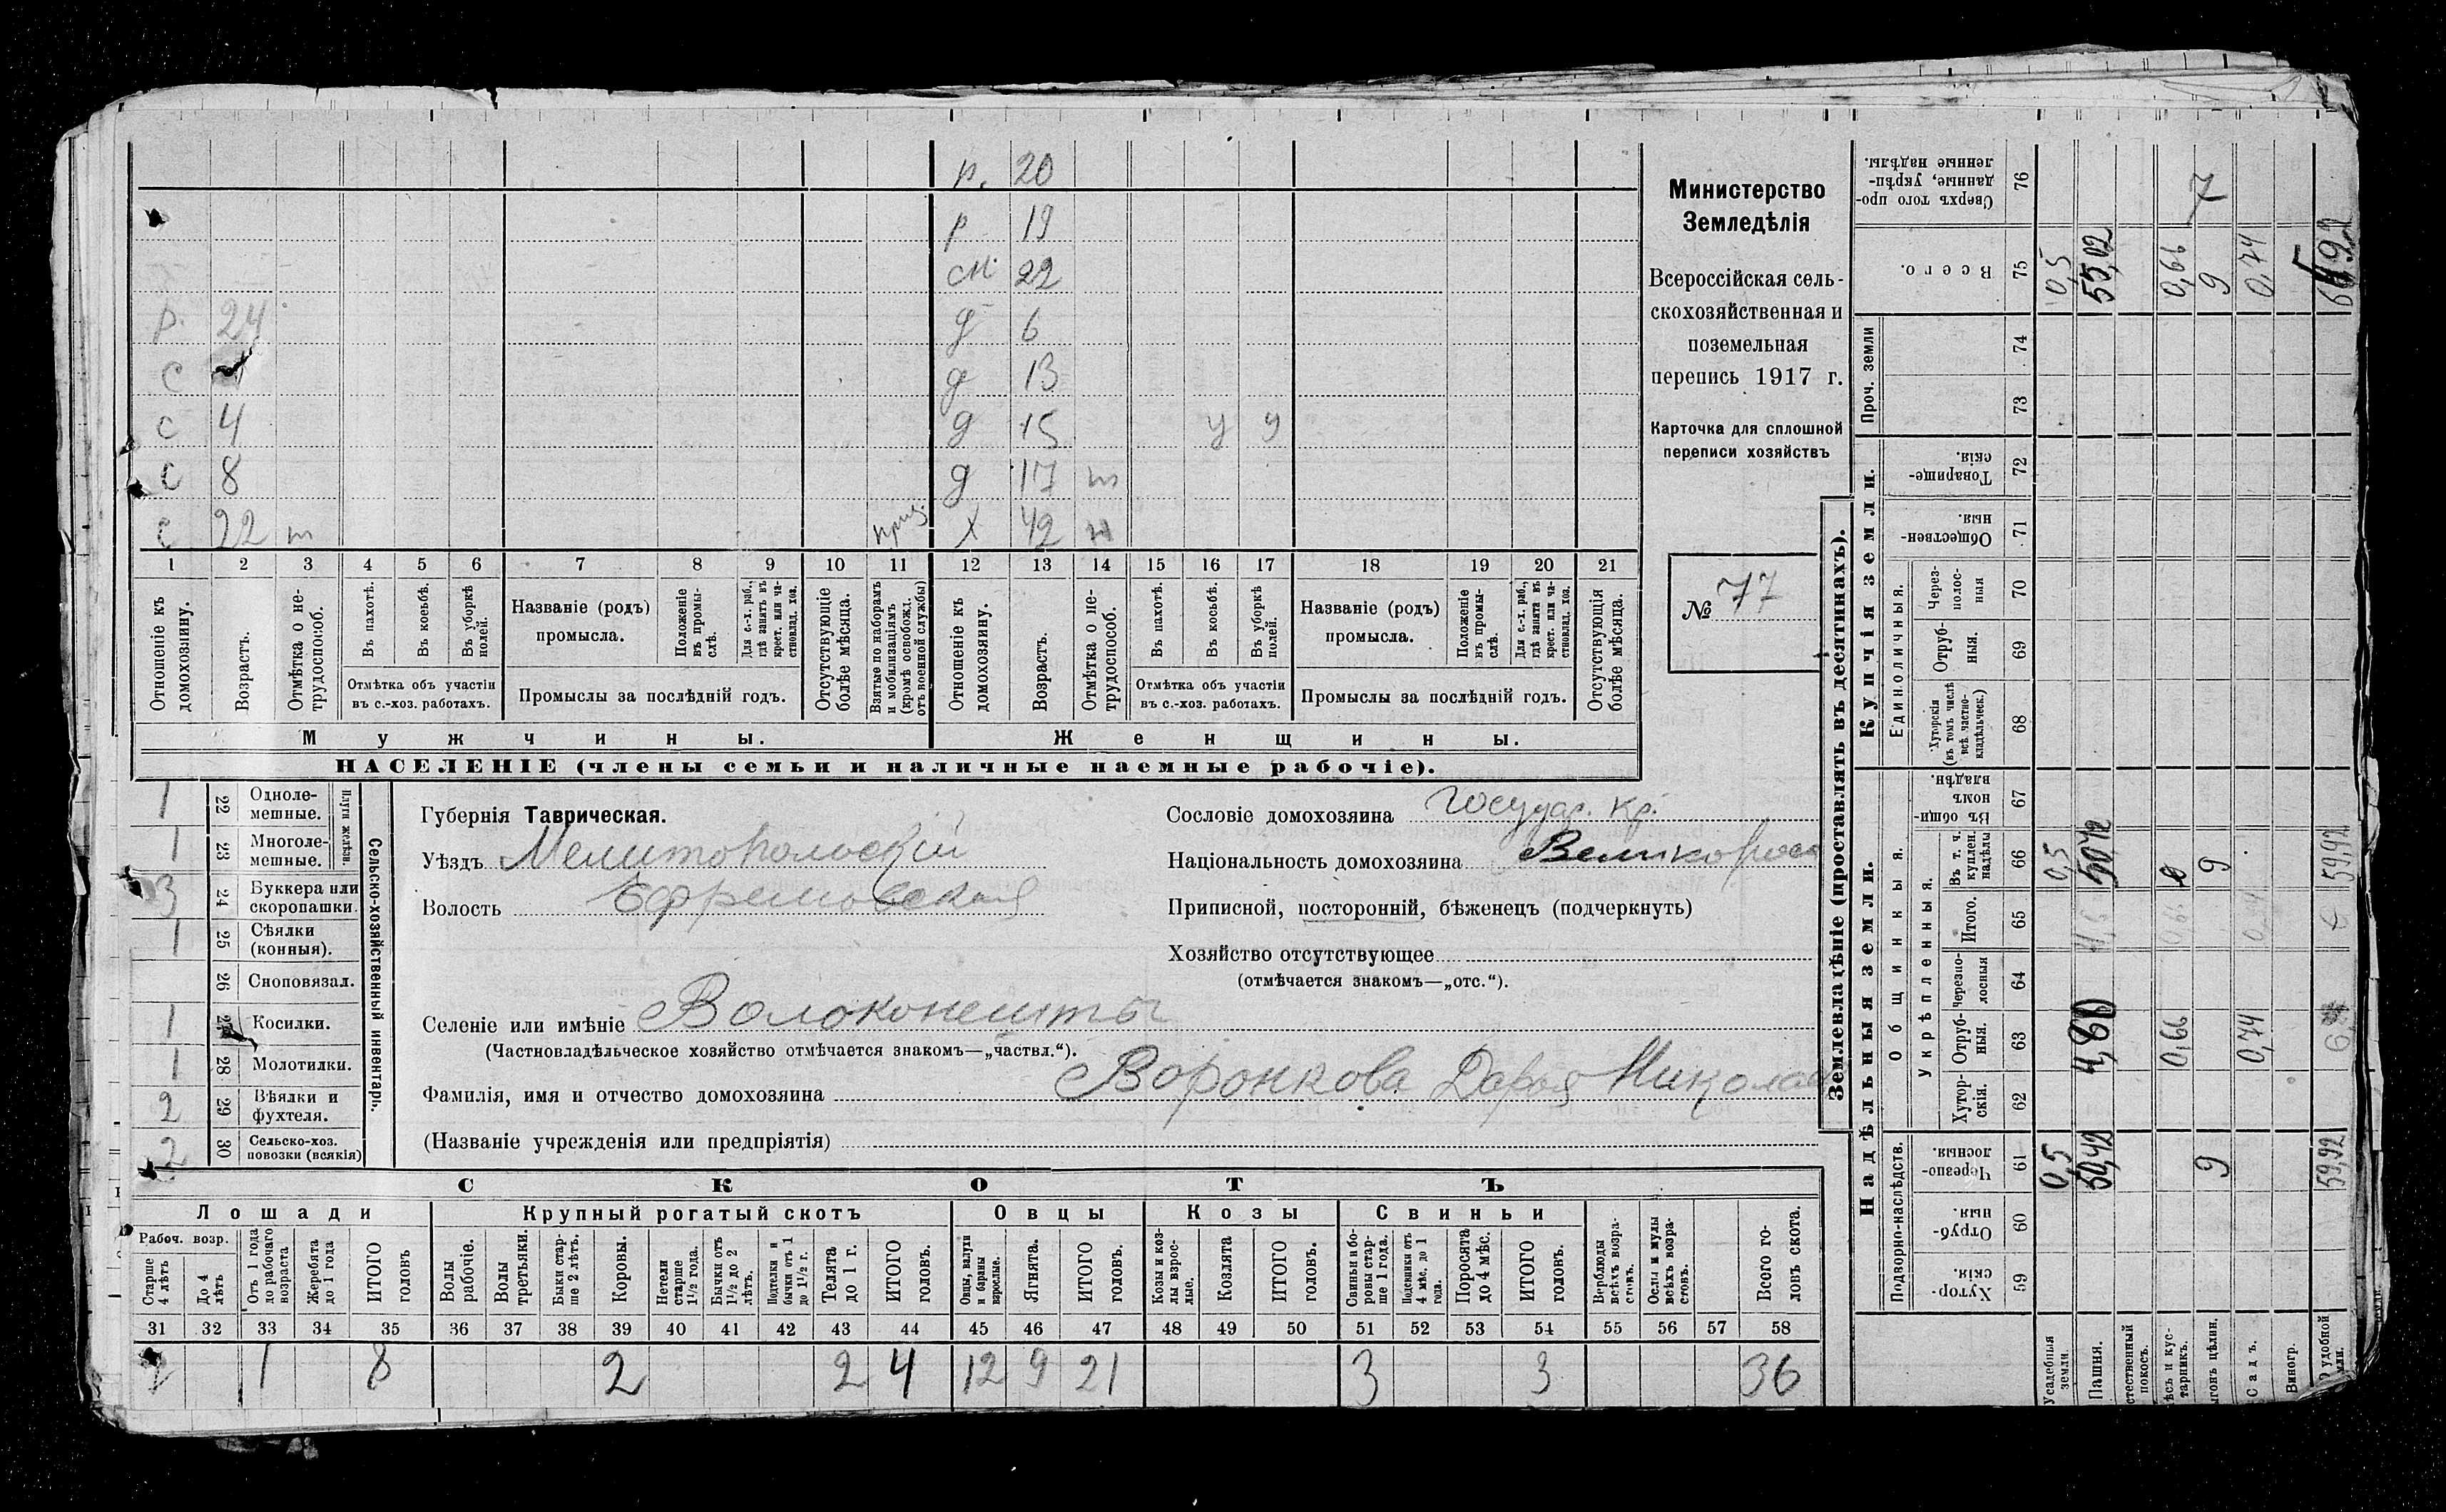 р. 20
р 19
см. 22
р. 24 д 6
с д 13
с 4 д 15 у у
с 8 д 17 т
с 22 т приз. х 42 н
1 2 3 4 5 6 7 8 9 10 11 12 13 14 15 16 17 18 19 20 21
Отношеніе къ домохозяину.
Возрастъ.
Отмѣтка о не-трудоспособ.
Въ пахотѣ.
Въ косьбѣ.
Въ уборкѣ полей.
Отмѣтка объ участіи
въ с.-хоз. работахъ.
Названіе (родъ)
промысла.
Положеніе въ промы-слѣ.
Для с.-х. раб., гдѣ занятъ въ крест. или ча-стновлад. хоз.
Промыслы за послѣдній годъ.
Отсутствующіе болѣе мѣсяца.
Взятые по наборамъ и мобилизаціямъ (кромѣ освобожд. отъ военной службы)
Отношеніе къ домохозяину.
Возрастъ.
Отмѣтка о не-трудоспособ.
Въ пахотѣ.
Въ косьбѣ.
Въ уборкѣ полей.
Отмѣтка объ участіи
въ с.-хоз. работахъ.
Названіе (родъ)
промысла.
Положеніе въ промы-слѣ.
Для с.-х. раб., гдѣ занята въ крест. или ча-стновлад. хоз.
Промыслы за послѣдній годъ.
Отсутствующія болѣе мѣсяца.
Мужчины. Женщины.
НАСЕЛЕНІЕ (члены семьи и наличные наемные рабочіе).
Министерство
Земледѣлія
Всероссійская сель-
скохозяйственная и
поземельная
перепись 1917 г.
Карточка для сплошной
переписи хозяйствъ
№ 77
1 22 Одноле-мешные.
1 23 Многоле-мешные.
Плуги желѣзн.
3 24 Буккера или скоропашки.
1 25 Сѣялки (конныя).
26 Сноповязал.
1 27 Косилки.
1 28 Молотилки.
2 29 Вѣялки и фухтеля.
2 30 Сельско-хоз. повозки (всякія)
Сельско-хозяйственный инвентарь.
Губернія Таврическая.
Уѣздъ Мелитопольскій
Волость Ефремовская
Сословіе домохозяина Государ. кр.
Національность домохозяина Великоросс
Приписной, посторонній, бѣженецъ (подчеркнуть)
Хозяйство отсутствующее
(отмѣчается знакомъ—„отс.“).
Селеніе или имѣніе Волоконешты
(Частновладѣльческое хозяйство отмѣчается знакомъ—„частвл.“).
Фамилія, имя и отчество домохозяина Воронкова Дарья Николаев
(Названіе учрежденія или предпріятія)
СКОТЪ
Лошади Крупный рогатый скотъ Овцы Козы Свиньи
Рабоч. возр.
Старше 4 лѣтъ
До 4 лѣтъ
Отъ 1 года до рабочаго возраста
Жеребята до 1 года
ИТОГО головъ
Волы рабочіе.
Волы третьяки.
Быки стар-ше 2 лѣтъ.
Коровы.
Нетели старше 1½ года.
Бычки отъ 1½ до 2 лѣтъ.
Подтелки и бычки отъ 1 до 1½ г.
Телята до 1 г.
ИТОГО головъ.
Овцы, валухи и бараны взрослые.
Ягнята.
ИТОГО головъ.
Козы и коз-лы взрос-лые.
Козлята
ИТОГО головъ.
Свиньи и бо-ровы стар-ше 1 года.
Подсвинки отъ 4 мѣс. до 1 года.
Поросята до 4 мѣс.
ИТОГО головъ.
Верблюды всѣхъ возра-стовъ.
Ослы и мулы всѣхъ возра-стовъ.
Всего го-ловъ скота.
31 32 33 34 35 36 37 38 39 40 41 42 43 44 45 46 47 48 49 50 51 52 53 54 55 56 57 58
7 1 8 2 2 4 12 9 21 3 3 36
Землевладѣніе (проставлять въ десятинахъ).
Надѣльныя земли. Купчія земли. Проч. земли
Подворно-наслѣдств.
Общинныя.
Укрѣпленныя.
Единоличныя.
Сверхъ того про-данные, укрѣп-ленные надѣлы. 76 7
Всего. 75 0,5 55,02 0,66 9 0,74
74
73
Товарище-скія. 72
Обществен-ныя. 71
Через-полос-ныя 70
Отруб-ныя. 69
Хуторскія (въ томъ числѣ всѣ частно-владѣльческ.) 68
Въ общин-номъ владѣн. 67
Въ т. ч. куплен. надѣлы 66 0,5 50,42 9 59,92
Итого. 65
Черезпо-лосныя 64
Отруб-ныя. 63 4,60 0,66 0,74
Хутор-скія. 62
Черезпо-лосныя. 61 0,5 50,42 9 59,92
Отруб-ныя. 60
Хутор-скія. 59
Усадебныя земли.
Пашня.
стественный покосъ.
ѣсъ и кус-тарникъ.
ыгонъ цѣлин.
Садъ.
Виногр.
удобной